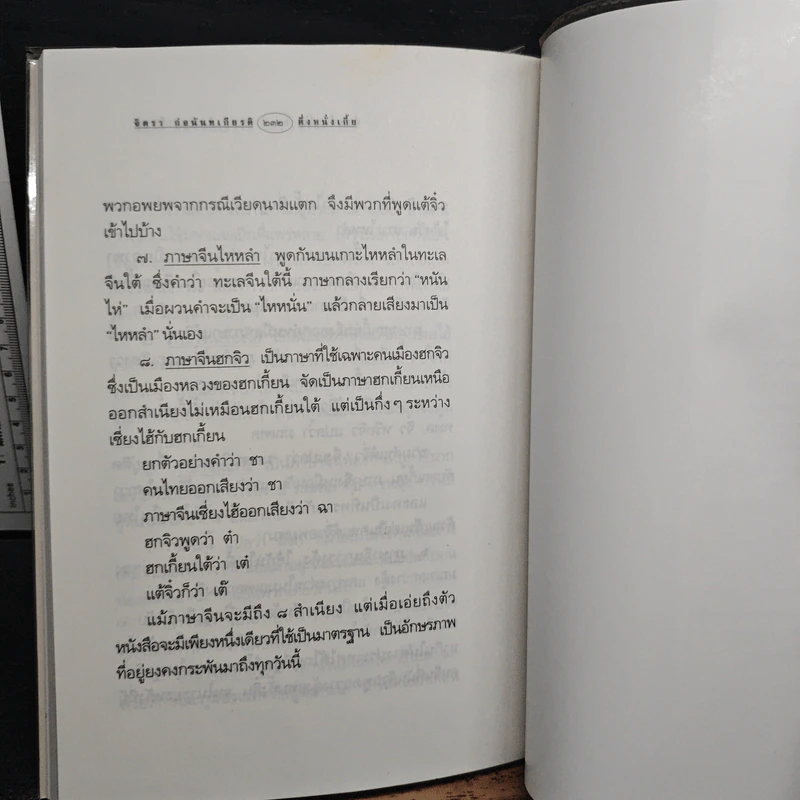 จิตรา ก่อนันทเกียรติ ๒๓๒ ตึ่งหนั่งเกี้ย
พวกอพยพจากกรณีเวียดนามแตก จึงมีพวกที่พูดแต้จิ๋ว
เข้าไปบ้าง
๗. ภาษาจีนไหหลำ พูดกันบนเกาะไหหลำในทะเล
จีนใต้ ซึ่งคำว่า ทะเลจีนใต้นี้ ภาษากลางเรียกว่า “หนัน
ไห่” เมื่อผวนคำจะเป็น “ไหหนั่น” แล้วกลายเสียงมาเป็น
“ไหหลำ” นั่นเอง
๘. ภาษาจีนฮกจิว เป็นภาษาที่ใช้เฉพาะคนเมืองฮกจิว
ซึ่งเป็นเมืองหลวงของฮกเกี้ยน จัดเป็นภาษาฮกเกี้ยนเหนือ
ออกสำเนียงไม่เหมือนฮกเกี้ยนใต้ แต่เป็นกึ่งๆ ระหว่าง
เซี่ยงไฮ้กับฮกเกี้ยน
ยกตัวอย่างคำว่า ชา
คนไทยออกเสียงว่า ชา
ภาษาจีนเซี่ยงไฮ้ออกเสียงว่า ฉา
ฮกจิวพูดว่า ต๋า
ฮกเกี้ยนใต้ว่า เต๋
แต้จิ๋วก็ว่า เต๊
แม้ภาษาจีนจะมีถึง ๘ สำเนียง แต่เมื่อเอ่ยถึงตัว
หนังสือจะมีเพียงหนึ่งเดียวที่ใช้เป็นมาตรฐาน เป็นอักษรภาพ
ที่อยู่ยงคงกระพันมาถึงทุกวันนี้